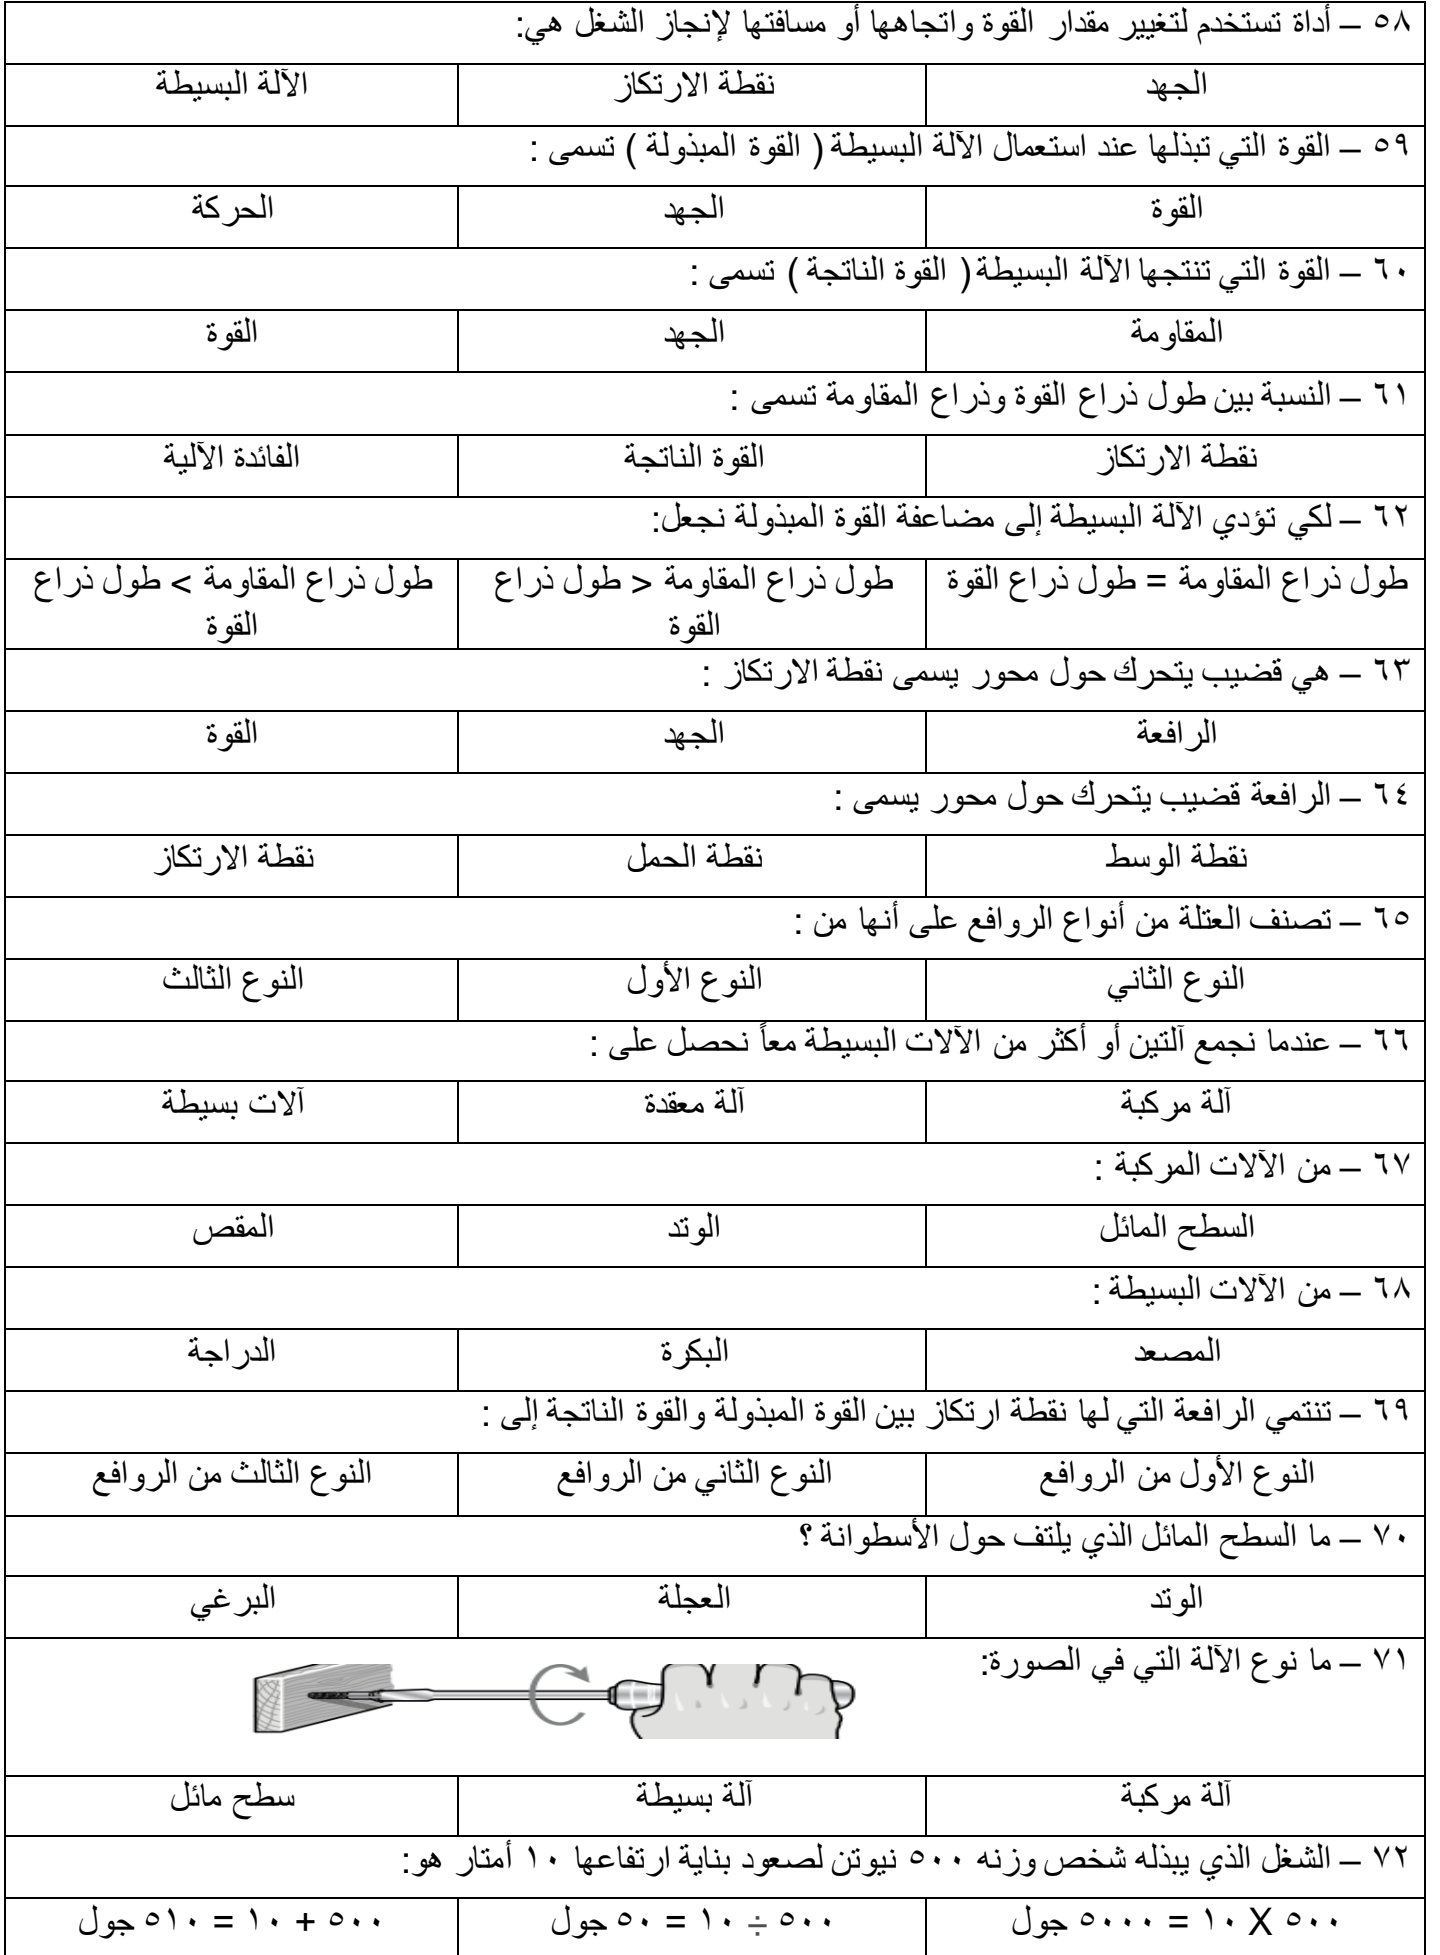 ٥٨ – أداة تستخدم لتغيير مقدار القوة واتجاهها أو مسافتها لإنجاز الشغل هي:
الجهد نقطة الارتكاز الآلة البسيطة
٥٩ – القوة التي تبذلها عند استعمال الآلة البسيطة ( القوة المبذولة ) تسمى :
القوة الجهد الحركة
٦٠ – القوة التي تنتجها الآلة البسيطة ( القوة الناتجة ) تسمى :
المقاومة الجهد القوة
٦١ – النسبة بين طول ذراع القوة وذراع المقاومة تسمى :
نقطة الارتكاز القوة الناتجة الفائدة الآلية
٦٢ – لكي تؤدي الآلة البسيطة إلى مضاعفة القوة المبذولة نجعل:
طول ذراع المقاومة = طول ذراع القوة طول ذراع المقاومة < طول ذراع القوة طول ذراع المقاومة > طول ذراع القوة
٦٣ – هي قضيب يتحرك حول محور يسمى نقطة الارتكاز :
الرافعة الجهد القوة
٦٤ – الرافعة قضيب يتحرك حول محور يسمى :
نقطة الوسط نقطة الحمل نقطة الارتكاز
٦٥ – تصنف العتلة من أنواع الروافع على أنها من :
النوع الثاني النوع الأول النوع الثالث
٦٦ – عندما نجمع آلتين أو أكثر من الآلات البسيطة معاً نحصل على :
آلة مركبة آلة معقدة آلات بسيطة
٦٧ – من الآلات المركبة :
السطح المائل الوتد المقص
٦٨ – من الآلات البسيطة :
المصعد البكرة الدراجة
٦٩ – تنتمي الرافعة التي لها نقطة ارتكاز بين القوة المبذولة والقوة الناتجة إلى :
النوع الأول من الروافع النوع الثاني من الروافع النوع الثالث من الروافع
٧٠ – ما السطح المائل الذي يلتف حول الأسطوانة ؟
الوتد العجلة البرغي
٧١ – ما نوع الآلة التي في الصورة:
آلة مركبة آلة بسيطة سطح مائل
٧٢ – الشغل الذي يبذله شخص وزنه ٥٠٠ نيوتن لصعود بناية ارتفاعها ١٠ أمتار هو:
٥٠٠ X ١٠ = ٥٠٠٠ جول ٥٠٠ ÷ ١٠ = ٥٠ جول ٥٠٠ + ١٠ = ٥١٠ جول